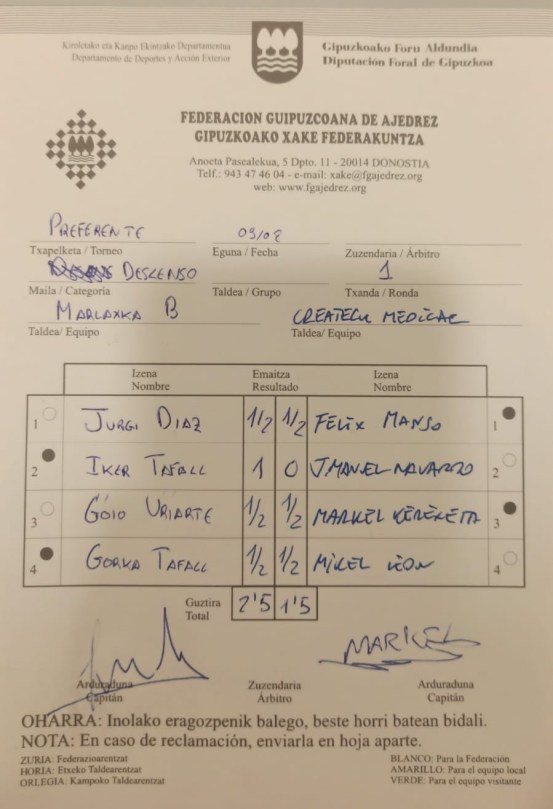 Kiroletako eta Kanpo Ekintzako Departamentua
Departamento de Deportes y Acción Exterior
Gipuzkoako Foru Aldundia
Diputación Foral de Gipuzkoa
FEDERACION GUIPUZCOANA DE AJEDREZ
GIPUZKOAKO XAKE FEDERAKUNTZA
Anoeta Pasealekua, 5 Dpto. 11 - 20014 DONOSTIA
Telf.: 943 47 46 04 - e-mail: xake@fgajedrez.org
web: www.fgajedrez.org
PREFERENTE 09/02
Txapelketa / Torneo Eguna / Fecha Zuzendaria / Árbitro
DESCENSO 1
Maila / Categoria Taldea / Grupo Txanda / Ronda
MARLAXKA B CREATECH MEDICAL
Taldea/ Equipo Taldea/ Equipo
Izena Emaitza Izena
Nombre Resultado Nombre
1 JURGI DIAZ 1/2 1/2 FELIX MANSO 1
2 IKER TAFALL 1 0 JMANUEL NAVARRO 2
3 GOIO URIARTE 1/2 1/2 MARKEL KEREXETA 3
4 GORKA TAFALL 1/2 1/2 MIKEL LEON 4
Guztira
Total 2'5 1'5
MARKEL
Arduraduna Zuzendaria Arduraduna
Capitán Árbitro Capitán
OHARRA: Inolako eragozpenik balego, beste horri batean bidali.
NOTA: En caso de reclamación, enviarla en hoja aparte.
ZURIA: Federazioarentzat BLANCO: Para la Federación
HORIA: Etxeko Taldearentzat AMARILLO: Para el equipo local
ORLEGIA: Kampoko Taldearentzat VERDE: Para el equipo visitante